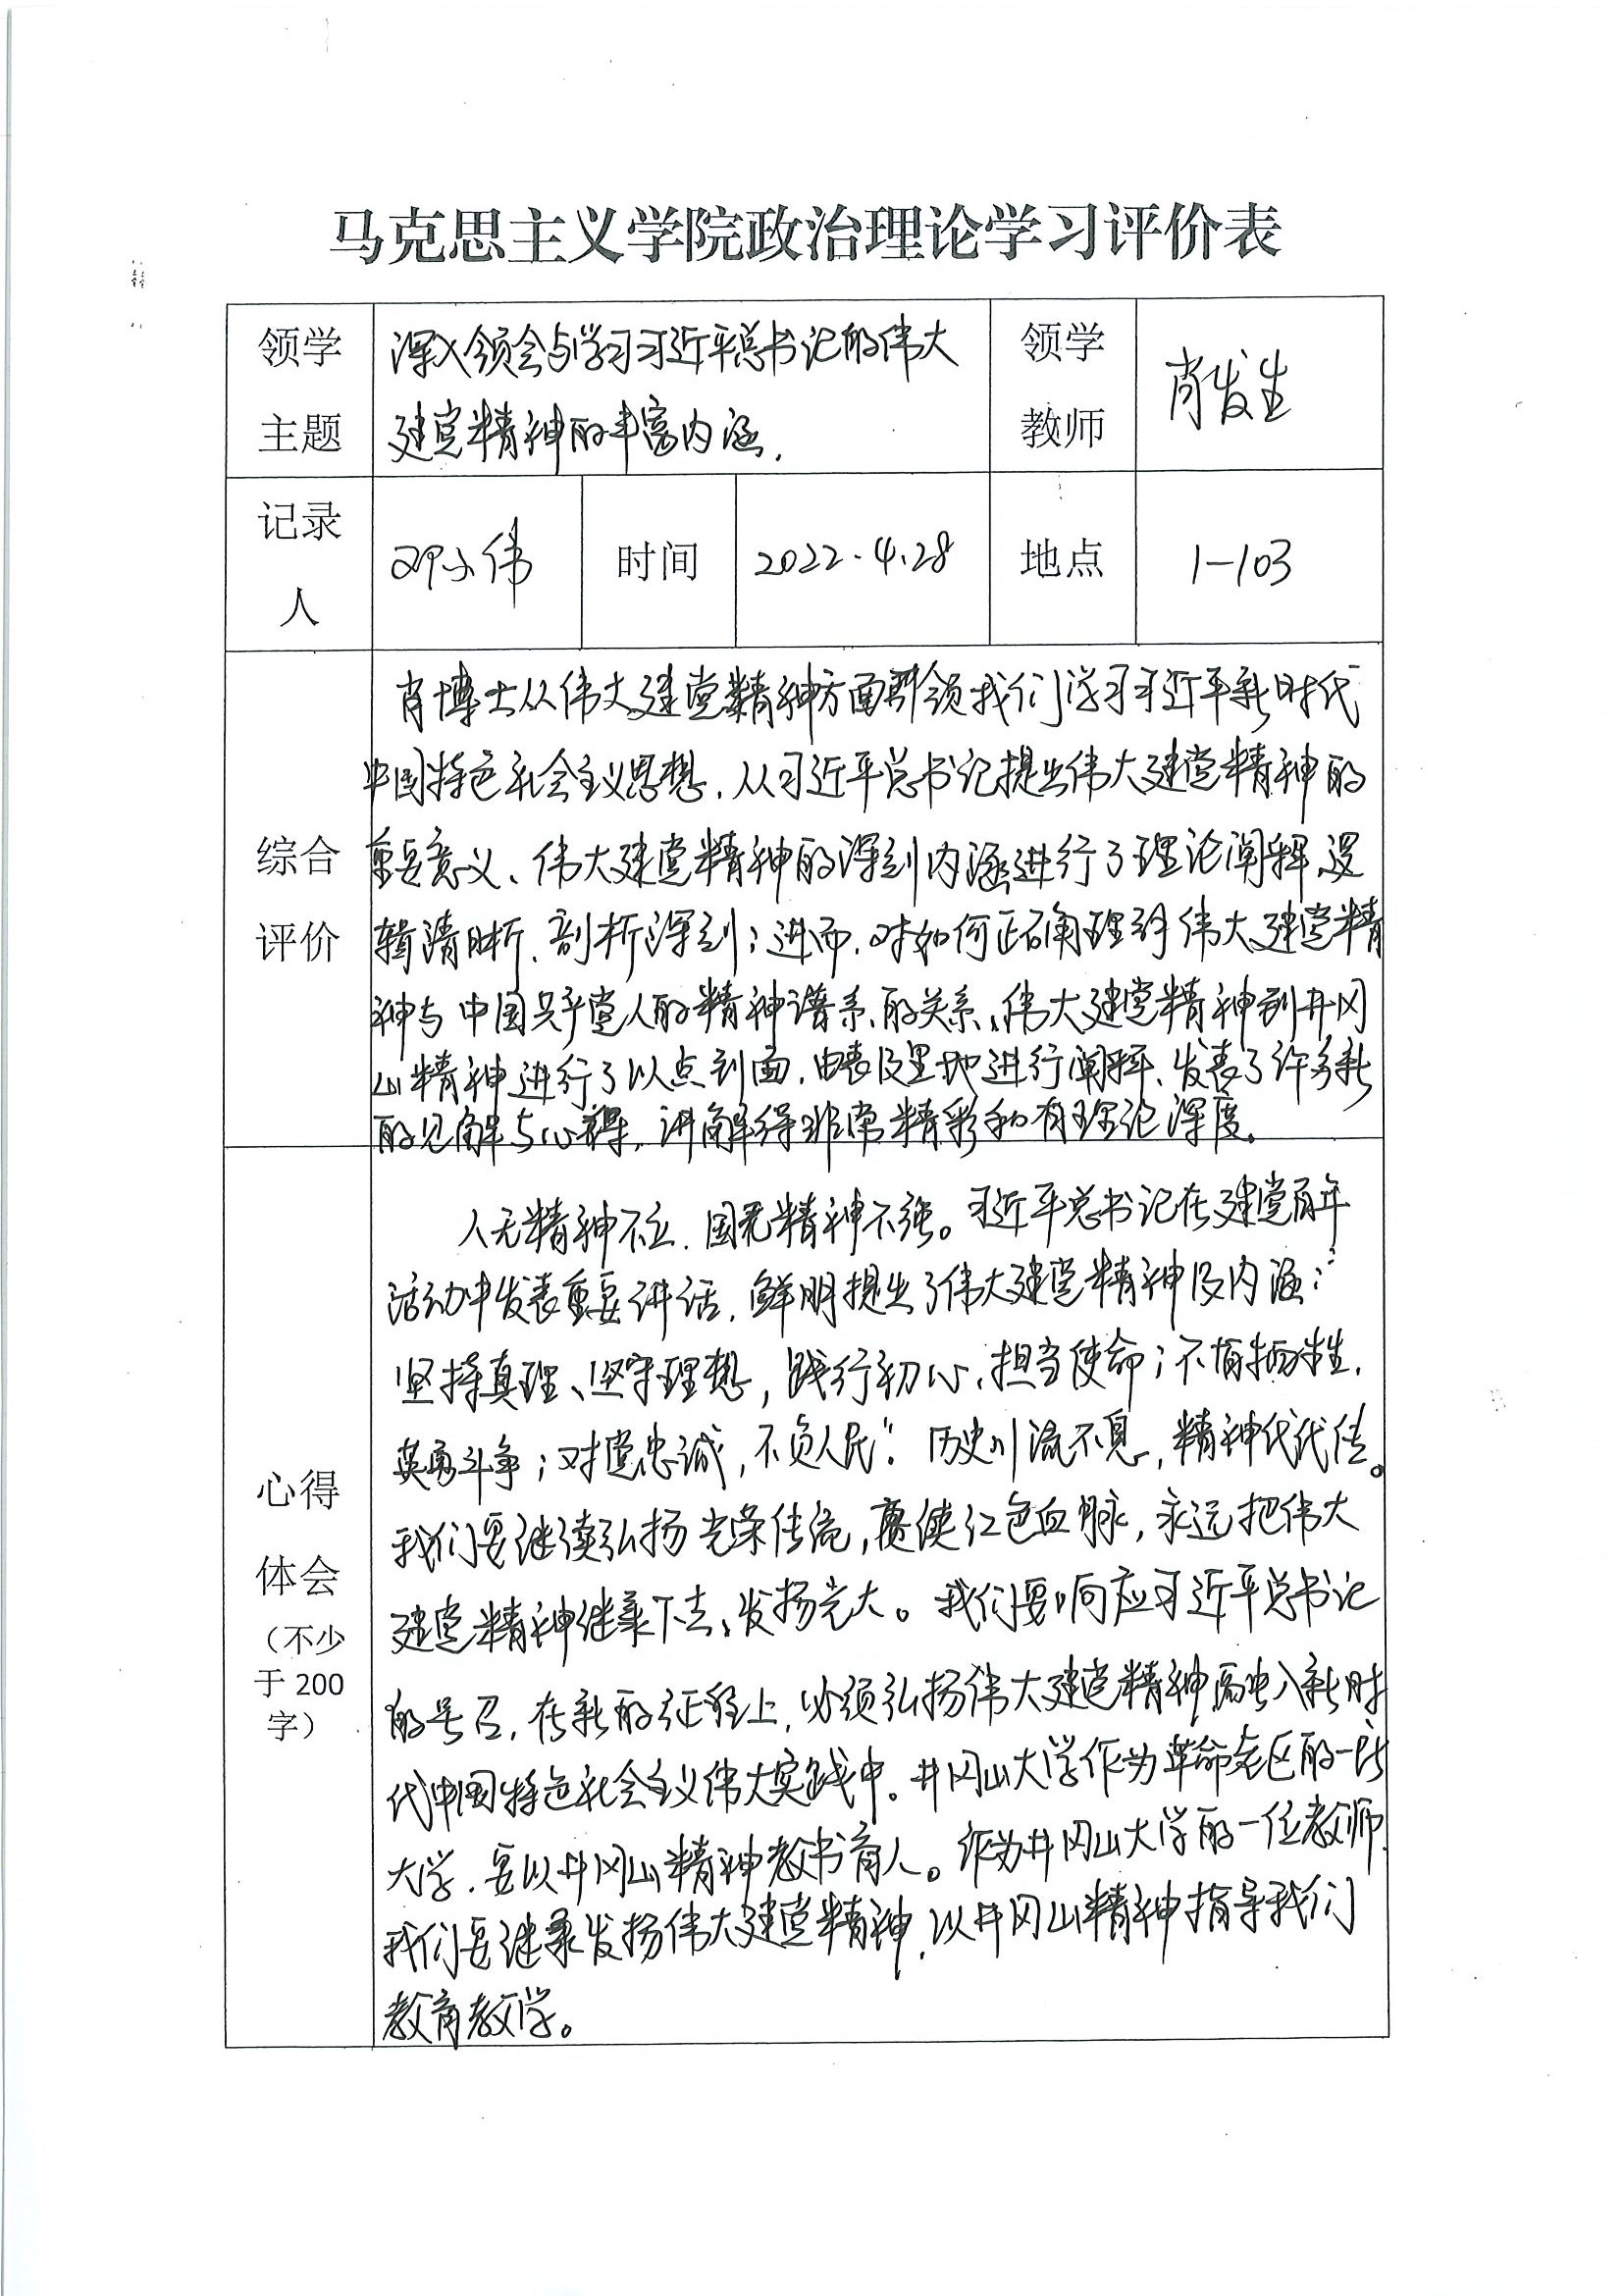 马克思主义学院政治理论学习评价表
领学
主题
深入领会与学习习近平总书记的伟大
建党精神的丰富内涵.
领学
教师
肖发生
记录
人
邓小伟
时间
2022.4.28
地点
1-103
综合
评价
肖博士从伟大建党精神方面带领我们学习习近平新时代
中国特色社会主义思想.从习近平总书记提出伟大建党精神的
重要意义、伟大建党精神的深刻内涵进行了理论阐释,逻
辑清晰、剖析深刻;进而,对如何正确理解伟大建党精
神与中国共产党人的精神谱系的关系、伟大建党精神到井冈
山精神进行了以点到面,由表及里地进行阐释、发表了许多新
的见解与心得,讲解得非常精彩和有理论深度.
心得
体会
(不少
于 200
字)
人无精神不立,国无精神不强。习近平总书记在建党百年
活动中发表重要讲话,鲜明提出了伟大建党精神及内涵:“
坚持真理、坚守理想,践行初心、担当使命;不怕牺牲、
英勇斗争;对党忠诚,不负人民”. 历史川流不息,精神代代传。
我们要继续弘扬光荣传统,赓续红色血脉,永远把伟大
建党精神继承下去、发扬光大。我们要响应习近平总书记
的号召,在新的征程上,必须弘扬伟大建党精神融入新时
代中国特色社会主义伟大实践中。井冈山大学作为革命老区的一所
大学,要以井冈山精神教书育人。作为井冈山大学的一位教师,
我们要继承发扬伟大建党精神,以井冈山精神指导我们
教育教学。